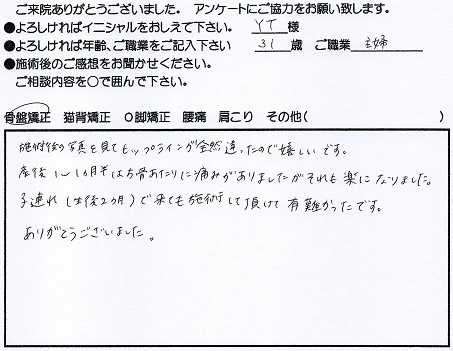 ご来院ありがとうございました。 アンケートにご協力をお願い致します。
●よろしければイニシャルをおしえて下さい。 YT 様
●よろしければ年齢、ご職業をご記入下さい 31 歳 ご職業 主婦
●施術後のご感想をお聞かせください。
ご相談内容を○で囲んで下さい。
骨盤矯正 猫背矯正 O脚矯正 腰痛 肩こり その他( )
施術後の写真を見てヒップラインが全然違ったので嬉しいです。
産後1~1ヵ月半は恥骨あたりに痛みがありましたがそれも楽になりました。
子連れ(生後2ヵ月)で来ても施術して頂けて有難かったです。
ありがとうございました。